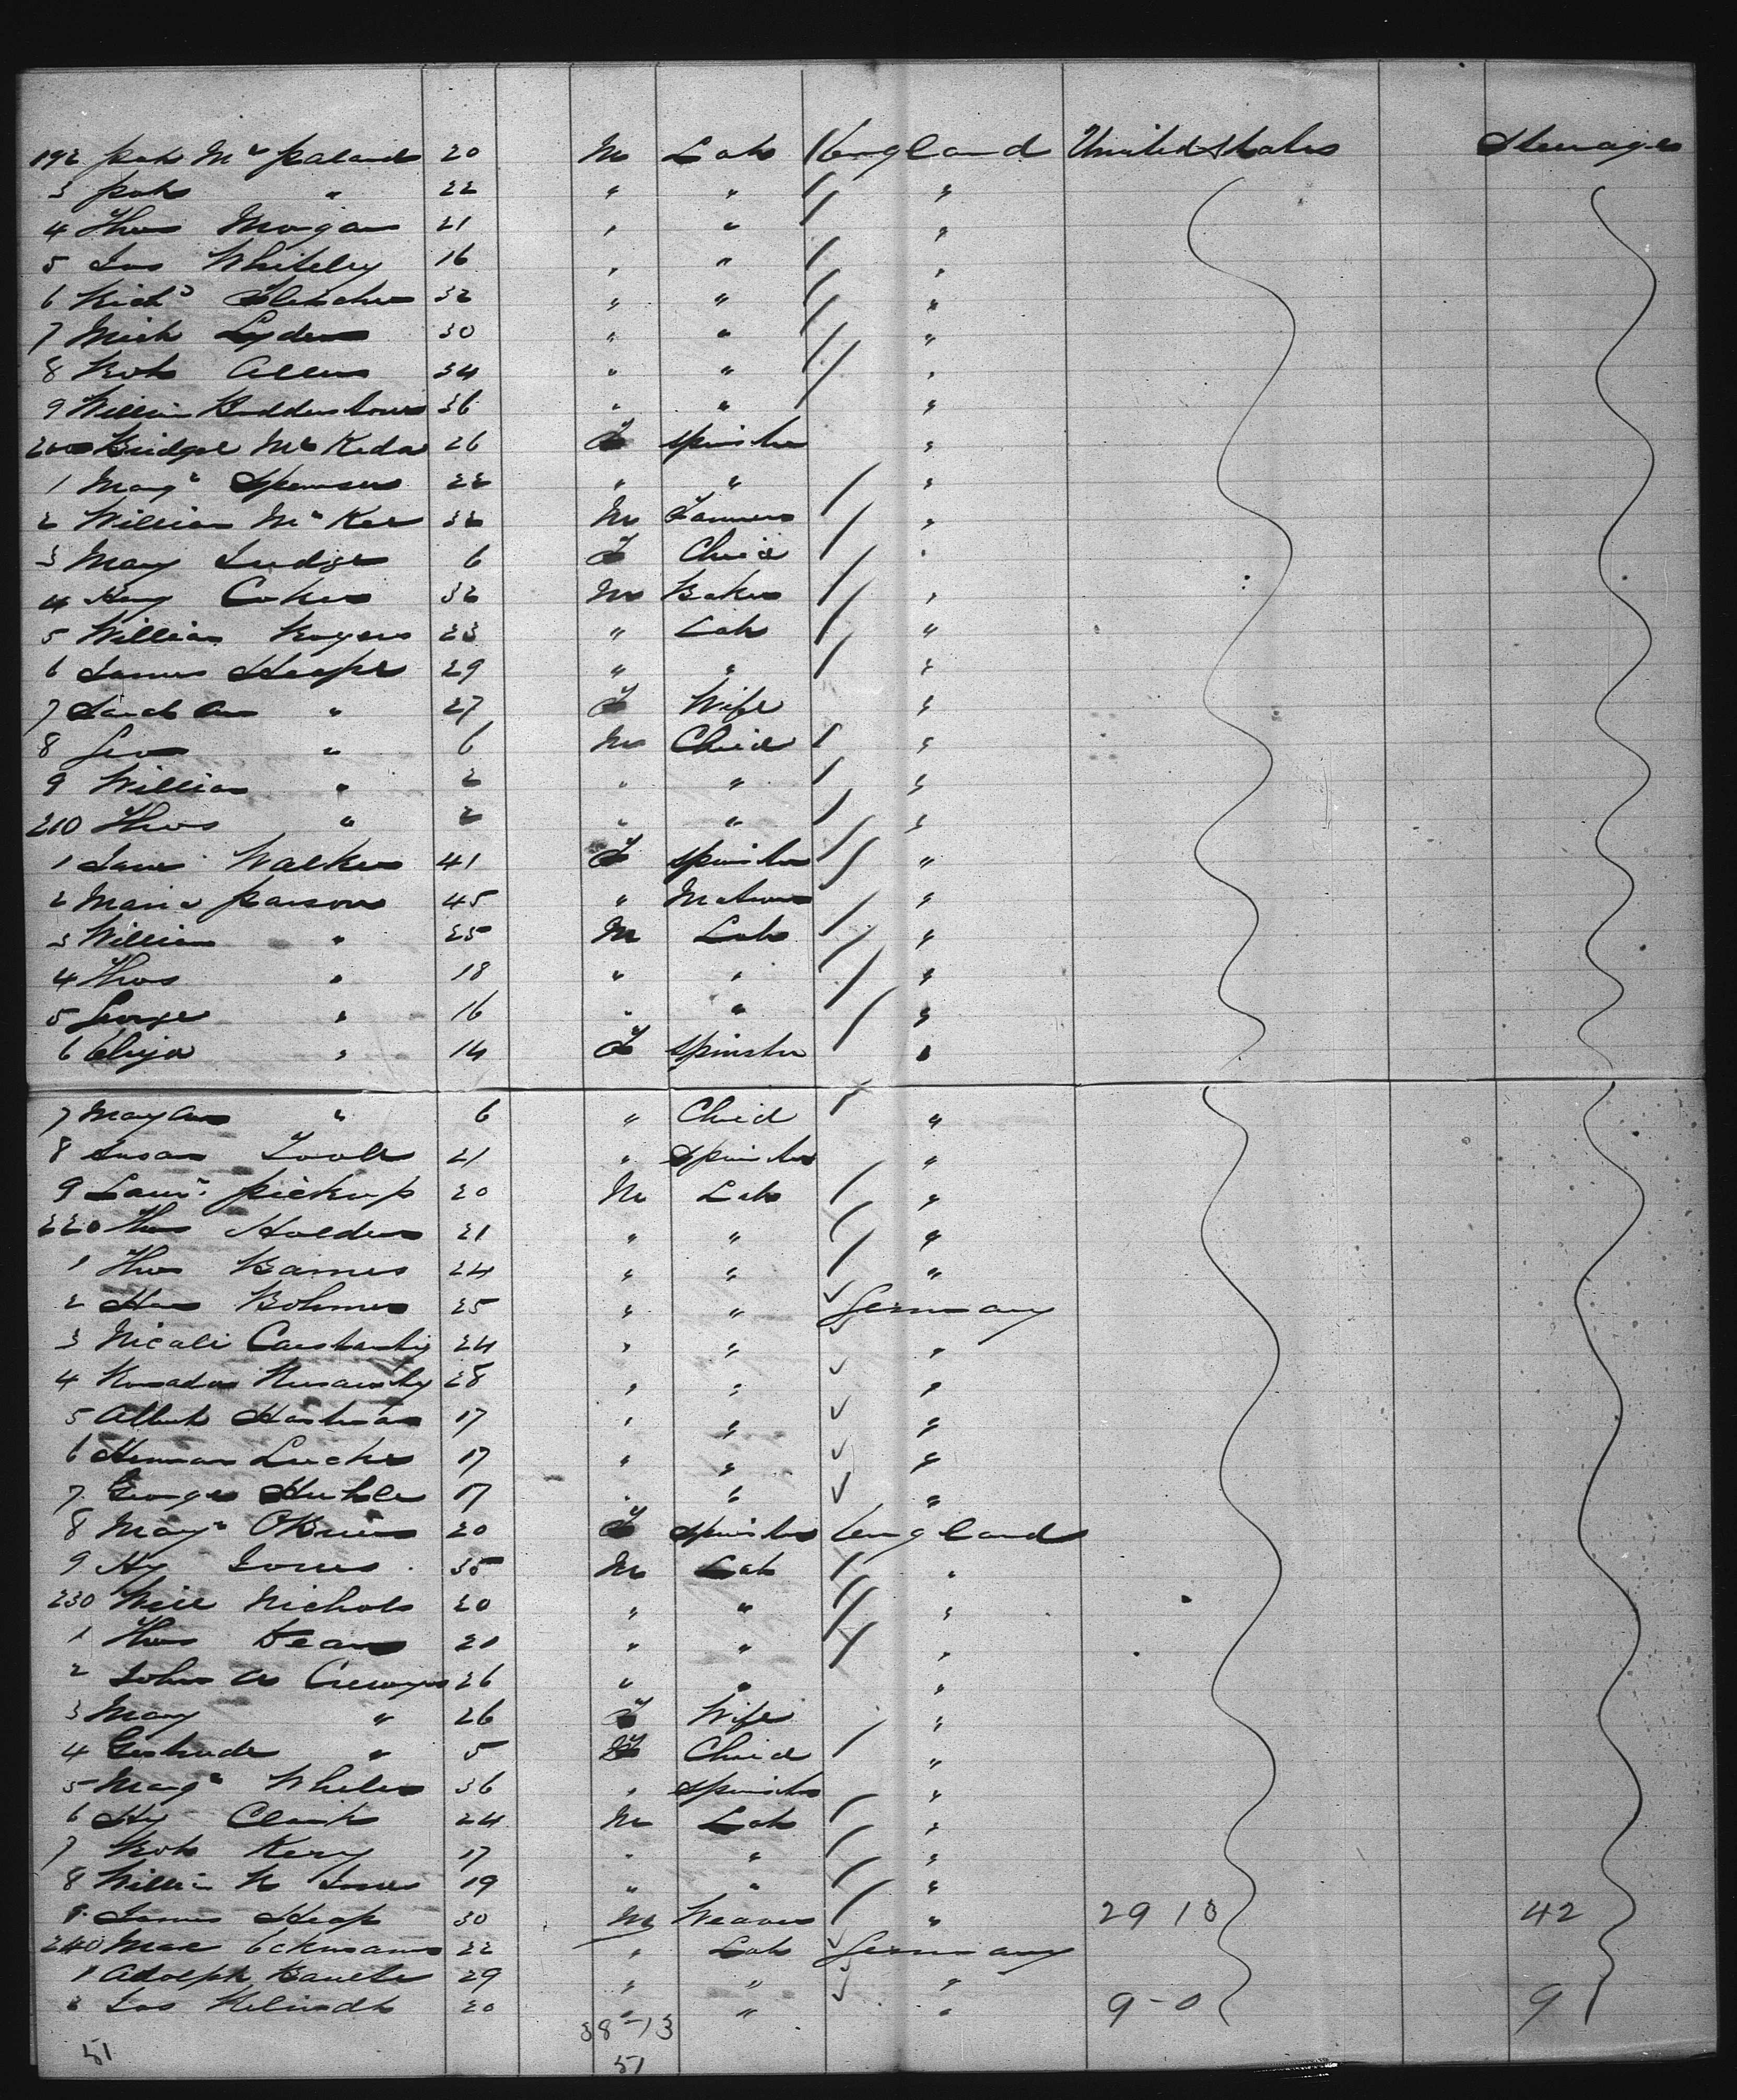 192 Pat Mc Paland 20 M Lab England United States Steerage
3 Pat " 22 " " "
4 Thos Morgan 21 " " "
5 Jas Whiteley 16 " " "
6 Richd 32 " " "
7 Mich Lyden 30 " " "
8 Rob Allen 34 " " "
9 William 36 " " "
200 Bridget Mc 26 F Spinster "
1 Margt Spencer 22 " " "
2 William Mc Kee 32 M Farmer "
3 Mary Judge 6 F Child "
4 Hy 32 M Baker "
5 William Rogers 23 " Lab "
6 James Heape 29 " " "
7 Sarah Ann " 27 F Wife "
8 Geo " 6 M Child "
9 William " 2 " " "
210 Thos " 2 " " "
1 Jane Walker 41 F Spinster "
2 Maria Parson 45 " Matron "
3 William " 25 M Lab "
4 Thos " 18 " " "
5 George " 16 " " "
6 Eliza " 14 F Spinster "
7 Mary Ann " 6 " Child "
8 Susan Toole 21 " Spinster "
9 Lawr. Pickup 20 M Lab "
220 Thos Holden 21 " " "
1 Thos Barnes 24 " " "
2 Bohmer 25 " " Germany
3 Nicali 24 " " "
4 28 " " "
5 Albert Hartman 17 " " "
6 Herman 17 " " "
7 George 17 " " "
8 Margt OBrien 20 F Spinster England
9 Hy Jones 35 M Lab "
230 Will Nichols 20 " " "
1 Thos Dean 20 " " "
2 John A 26 " " "
3 Mary " 26 F Wife "
4 Gertrude " 5 F Child "
5 Margt 36 " Spinster "
6 Hy Clark 24 M Lab "
7 Rob 17 " " "
8 William H Jones 19 " " "
9 James Heap 30 M Weaver " 29 13 42
240 Max Eckmann 22 " Lab Germany
1 Adolph 29 " " "
2 Jos 20 " " " 9-0 9
38-13
51 51